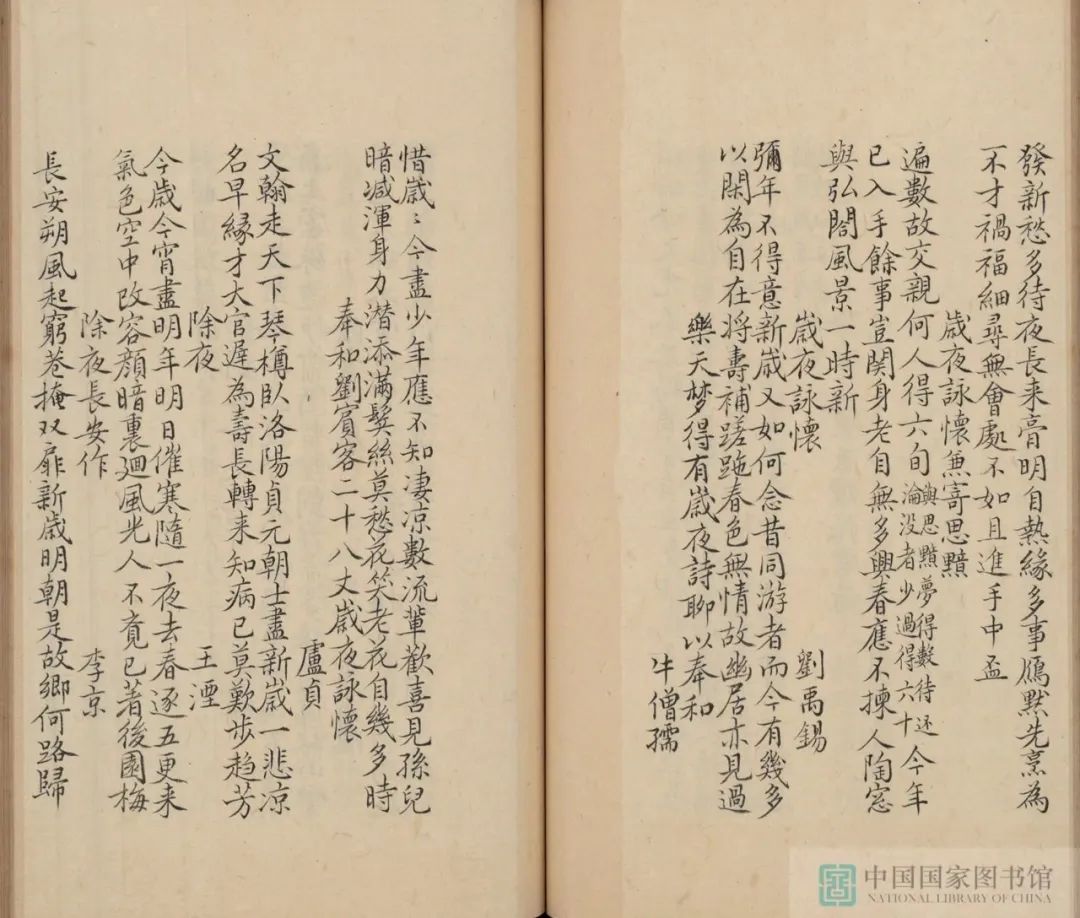 發新愁多待夜長来膏明自熱緣多事鴈默先烹為
不才禍福細尋無會處不如且進手中盃
歲夜詠懷兼寄思黯
遍數故交親何人得六旬與思黯夢得數待还淪没者少過得六十今年
已入手餘事豈関身老自無多興春應不揀人陶窓
與弘閤風景一時新
歲夜詠懷 劉禹錫
彌年不得意新歲又如何念昔同游者而今有幾多
以閑為自在将壽補蹉跎春色無情故幽居亦見過
樂天梦得有歲夜詩聊以奉和
牛僧孺
惜歲〻今盡少年應不知凄凉數流輩歡喜見孫兒
暗减渾身力潜添滿鬢絲莫愁花笑老花自幾多時
奉和劉賓客二十八丈歲夜詠懷
盧貞
文翰走天下琴樽臥洛陽貞元朝士盡新歲一悲凉
名早緣才大官遲為壽長轉来知病已莫歎步趋芳
除夜 王湮
今歲今宵盡明年明日催寒隨一夜去春逐五更来
氣色空中改容顔暗裏廻風光人不竟已著後園梅
除夜長安作 李京
長安朔風起窮巷掩双扉新歲明朝是故鄉何路歸
中国国家图书馆
NATIONAL LIBRARY OF CHINA